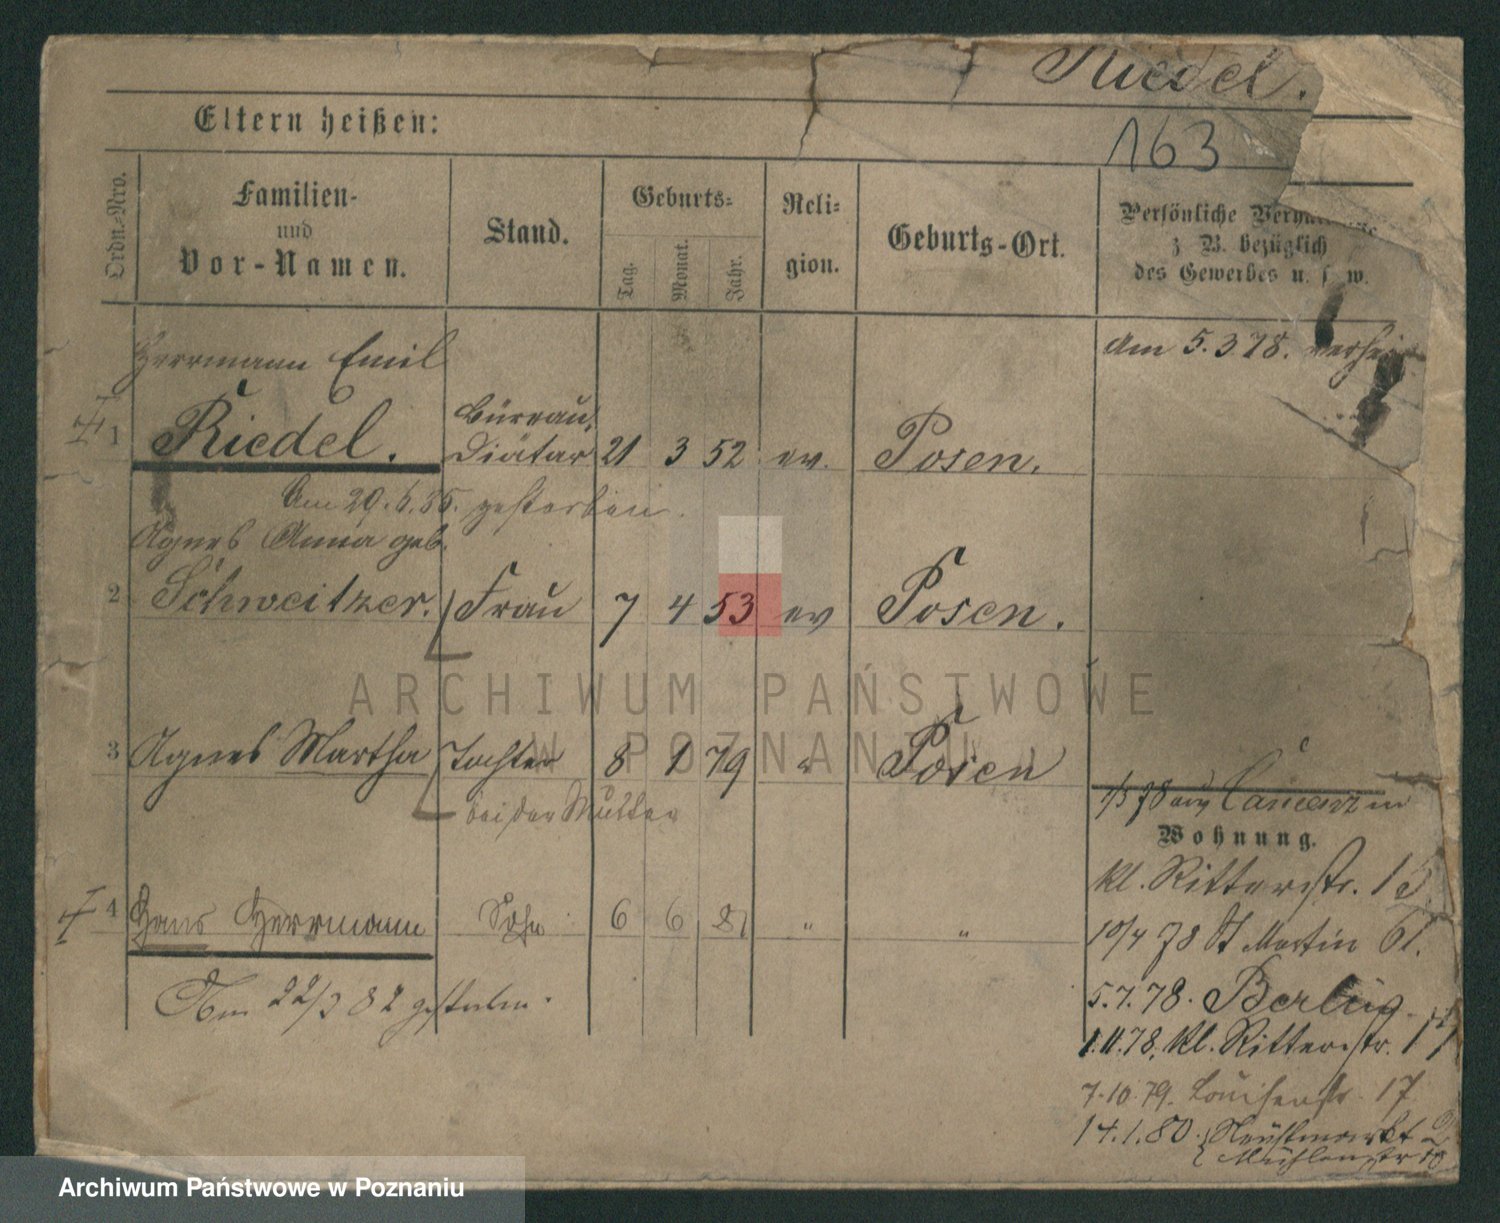 Riedel.
Eltern heißen:
163
Ordn.-Nro.
Familien-
und
Vor-Namen.
Stand.
Geburts-
Tag.
Monat.
Jahr.
Reli-
gion.
Geburts-Ort.
Persönliche
z B. bezüglich
des Gewerbes u. s w.
Herrmann Emil
am 5.3.78.
1 Riedel. Büreau, Diätar 21 3 52 ev. Posen.
Am 29.6.85. gestorben.
Agnes Anna geb.
2 Schweitzer. Frau 7 4 53 ev Posen.
3 Agnes Martha Tochter 8 1 79 " Posen
bei der Mutter
1/3 78 aus
Wohnung.
kl. Ritterstr. 13
4 Hans Herrmann Sohn 6 6 81 " "
10/4 78 St Martin 61.
Am 22/3 82 gestorben.
5.7.78.
1.11.78. kl. Ritterstr. 17
7.10.79. Louisenstr. 17
14.1.80. Neustmarkt
Mühlenstr
ARCHIWUM PAŃSTWOWE
W POZNANIU
Archiwum Państwowe w Poznaniu